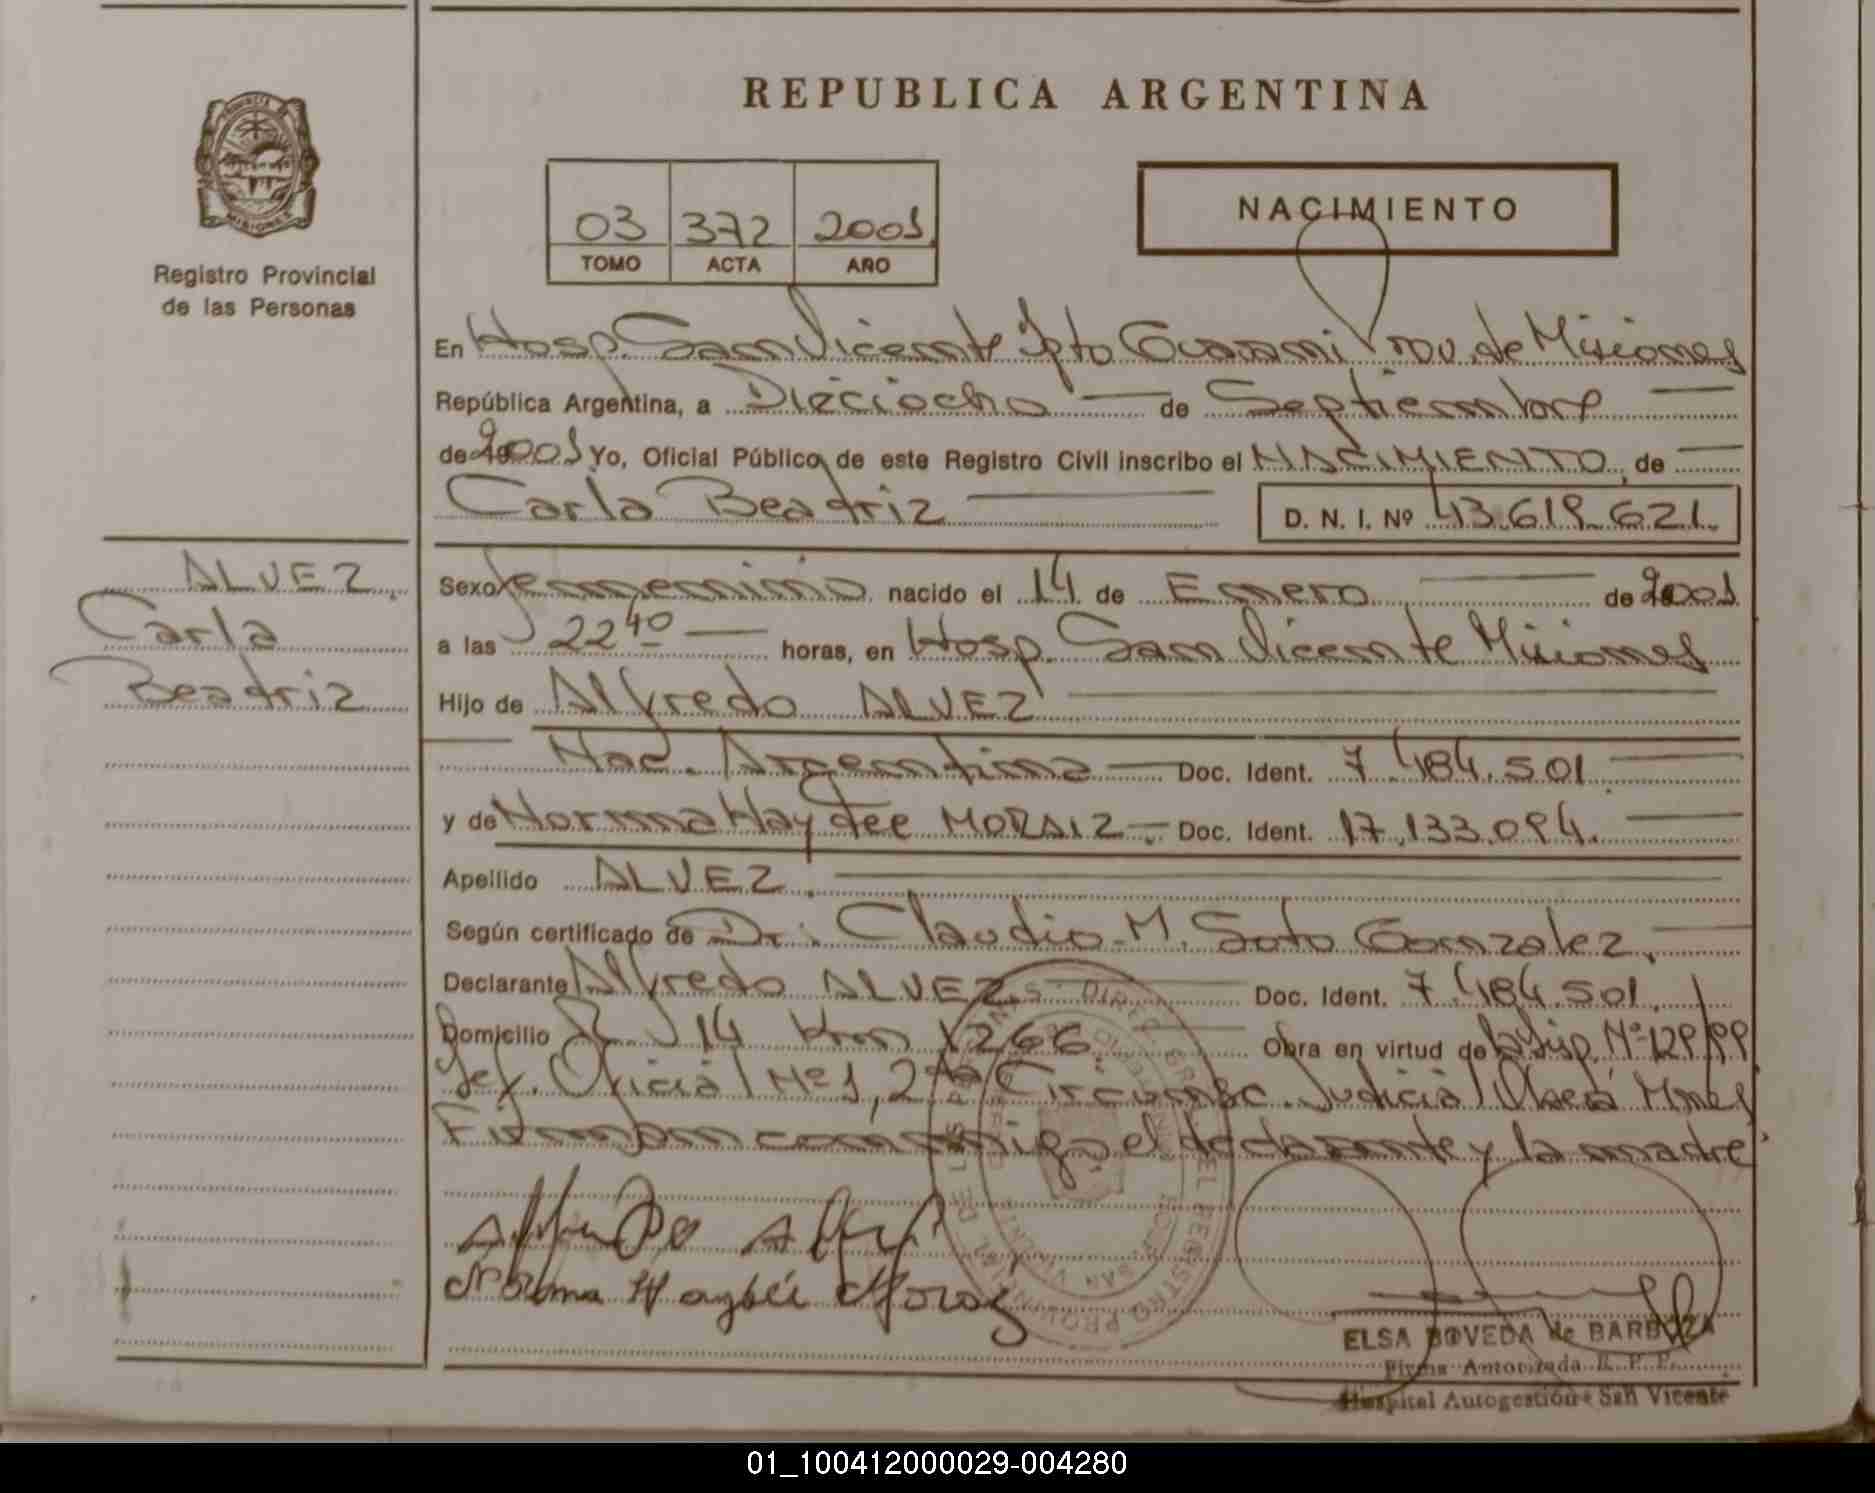 REPUBLICA ARGENTINA
MISIONES
Registro Provincial
de las Personas
03 372 2001
TOMO ACTA AÑO
NACIMIENTO
En Hosp. San Vicente Dpto Guaraní Prov. de Misiones
República Argentina, a Dieciocho de Septiembre
de 2001 Yo, Oficial Público de este Registro Civil inscribo el NACIMIENTO de
Carla Beatriz D. N. I. Nº 43.619.621.
ALVEZ
Carla
Beatriz
Sexo femenino nacido el 14 de Enero de 2001
a las 22 40 horas, en Hosp. San Vicente Misiones
Hijo de Alfredo ALVEZ
Nac. Argentina Doc. Ident. 7.484.501
y de Norma Haydee MORAIZ Doc. Ident. 17.133.094.
Apellido ALVEZ.
Según certificado de Dr. Claudio M. Soto Gonzalez.
Declarante Alfredo ALVEZ Doc. Ident. 7.484.501.
Domicilio R. 14 Km 1266 Obra en virtud de Nº 129/99
Oficial Nº 1, 2da Circunsc. Judicial Oberá Mnes
Firman conmigo el declarante y la madre
Norma Haydée
DIREC. GRAL. DEL REGISTRO PROVINCIAL DE LAS PERSONAS
SAN VICENTE
ELSA BOVEDA de BARBOZA
Firma Autorizada R. P. P.
Hospital Autogestión - San Vicente
01_100412000029-004280